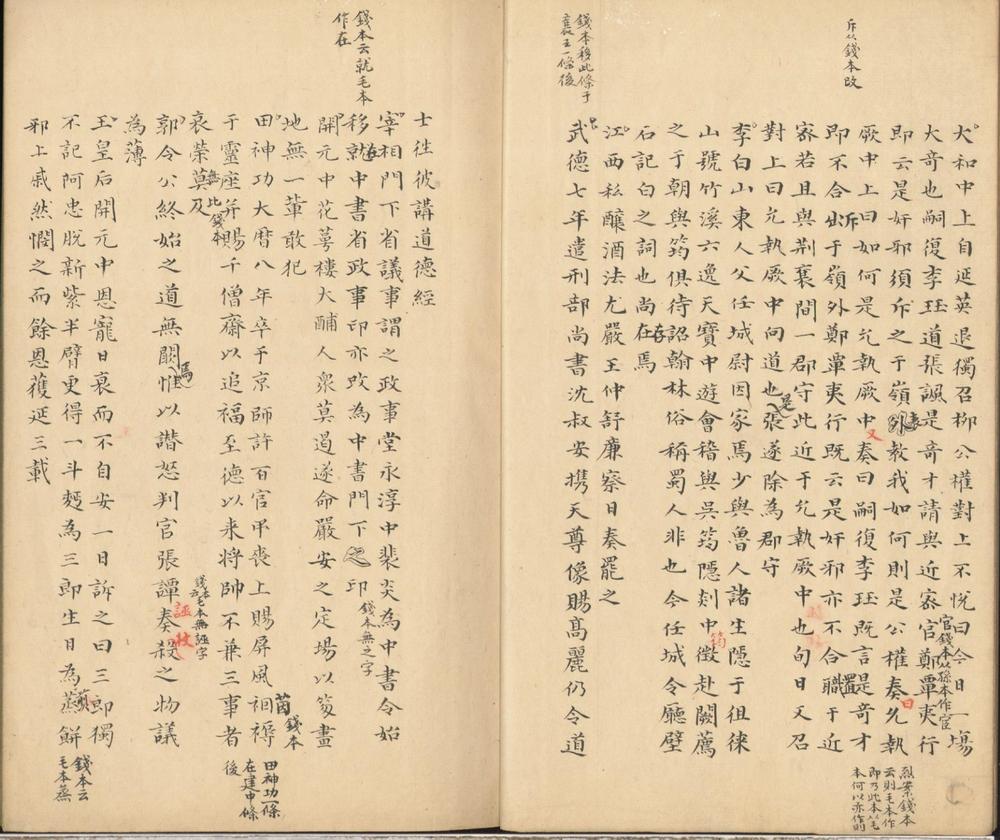 大和中上自延英退獨召柳公權對上不悅曰今日一塲
大奇也嗣復李珏道張諷是奇才請與近宻官鄭覃夷行
即云是奸邪須斥之于嶺外教我如何則是公權奏允執
厥中上曰如何是允執厥中又奏曰嗣復李珏既言是奇才
即不合斥出于嶺外鄭覃夷行既云是奸邪亦不合職于近
宻若且與荆襄間一郡守此近于允執厥中也旬日又召
對上曰允執厥中向道也是張遂除為郡守
李白山東人父任城尉因家焉少與魯人諸生隱于徂徠
山號竹溪六逸天寶中遊會稽與吳筠隱剡中筠徴赴闕薦
之于朝與筠俱待詔翰林俗稱蜀人非也今任城令廳壁
石記白之詞也尚在焉
江西秘釀酒法尤嚴王仲舒廉察日奏罷之
武德七年遣刑部尚書沈叔安携天尊像賜髙麗仍令道
斥以錢本改
錢本移此條于
襄王一條後
官錢本以孫本作宦
烈案錢本
云則毛本作
即乃此本以毛
本何以亦作則
士徃彼講道德經
宰相門下省議事謂之政事堂永淳中裴炎為中書令始
移就中書省政事印亦攺為中書門下之印
錢本無之字
開元中花萼樓大酺人衆莫遏遂命嚴安之定塲以笏畫
地無一輩敢犯
田神功大曆八年卒于京師許百官弔喪上賜屏風裀褥
茵錢本
于靈座并賜千僧齋以追福至德以来將帥不兼三事者
哀榮莫及
無比錢本
郭令公終始之道無闕惟以譖怒判官張譚奏殺之物議
錢本云毛本無誣字
為薄
王皇后開元中恩寵日衰而不自安一日訴之曰三郎獨
不記阿忠脫新紫半臂更得一斗麪為三郎生日為蒸餅
邪上戚然憫之而餘恩獲延三載
錢本云就毛本
作在
田神功一條
在建中條
後
錢本云
毛本蒸